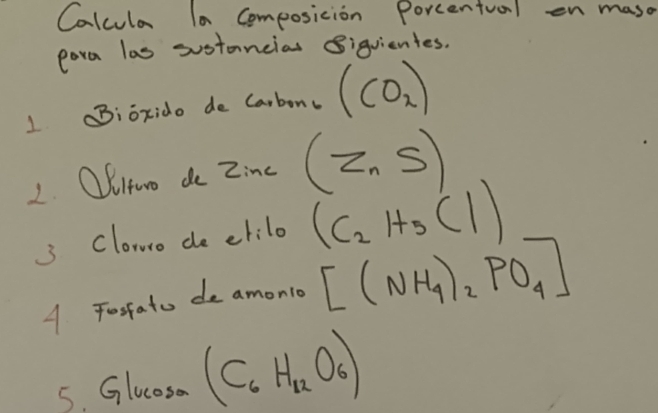 Calcula la Composición Porcentual en masa
para las sustancias Siguientes.
1 Bióxido de Carbono (CO₂)
2. Sulfuro de Zinc (Zn S)
3 Cloruro de etilo (C₂ H₅ Cl)
4 Fosfato de amonio [(NH₄)₂ PO₄]
5. Glucosa (C₆ H₁₂ O₆)